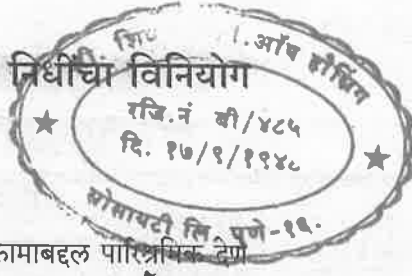 निधींचा विनियोग
.आॅफ हौसिंग
रजि.नं बी/४८५
दि. १७/९/१९४८
सोसायटी लि. पुणे-१६.
कामाबद्दल पारिश्रमिक देणे